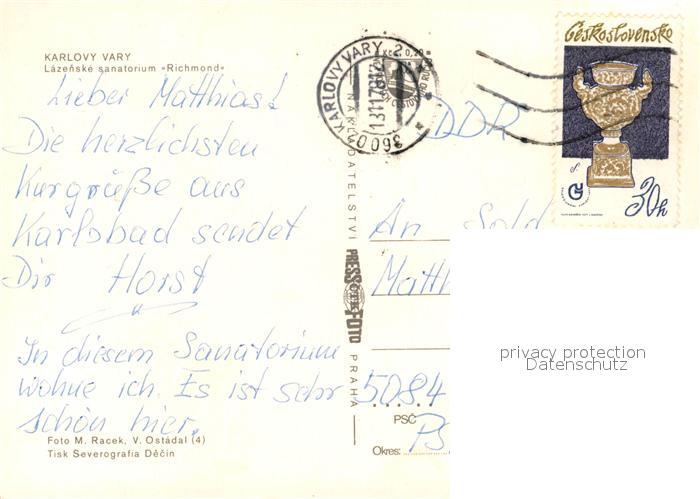 KARLOVY VARY
Lázeňské sanatorium »Richmond«
Lieber Matthias!
Die herzlichsten
Kurgrüße aus
Karlsbad sendet
Dir Horst
In diesem Sanatorium
wohne ich. Es ist sehr
schön hier.
Foto M. Racek, V. Ostádal (4)
Tisk Severografia Děčín
NAKLADATELSTVÍ
PRESSFOTO
PRAHA
Kčs 0,20
KARLOVY VARY 2
36001
Československo
30h
DDR
An Sold.
Matth
5084
PSČ
Okres:
privacy protection
Datenschutz